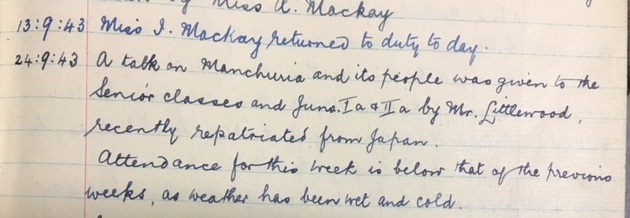 by Miss A. Mackay
13:9:43 Miss I. Mackay returned to duty to day.
24:9:43 A talk on Manchuria and its people was given to the
Senior classes and Junr. Ia & IIa by Mr. Littlewood,
recently repatriated from Japan.
Attendance for this week is below that of the previous
weeks, as weather has been wet and cold.